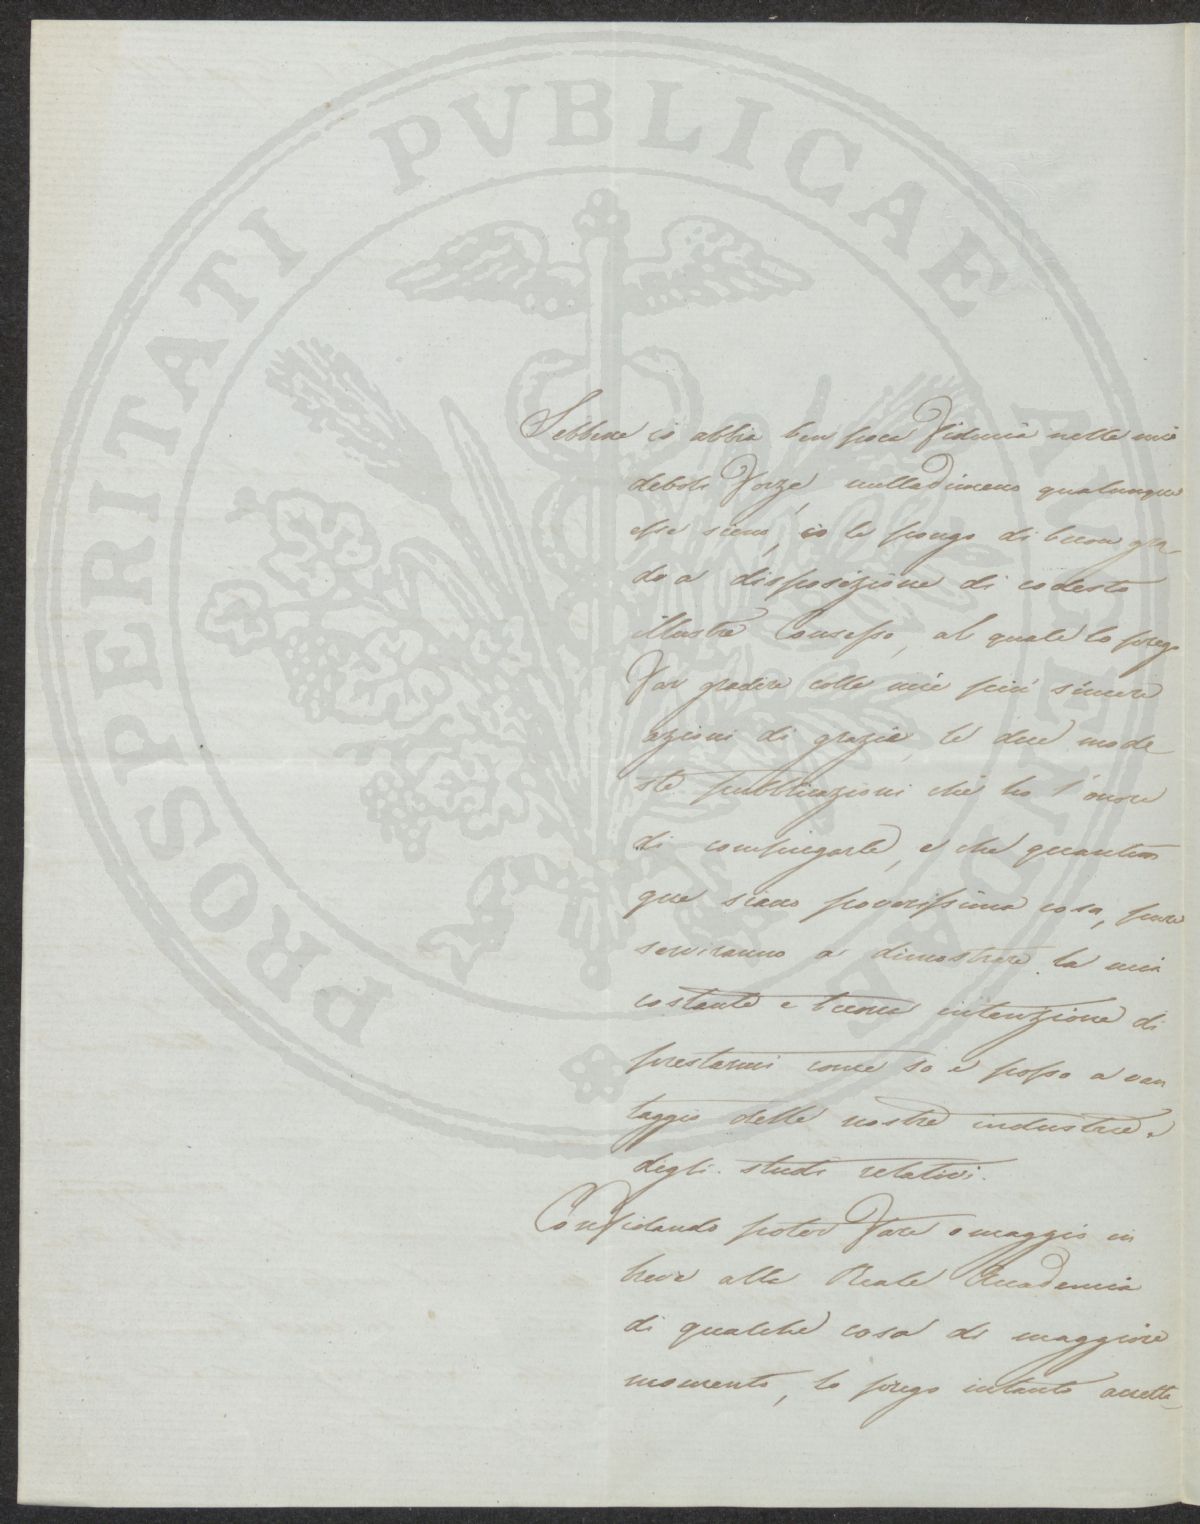 PROSPERITATI PVBLICAE AVGENDAE
Sebbene io abbia ben poca fiducia nelle mie
deboli forze, nulladimeno qualunque
esse sieno, io le pongo di buon gra-
do a disposizione di codesto
illustre Consesso, al quale la prego
far gradire colle mie più sincere
azioni di grazie, le due mode
ste pubblicazioni che ho l'onore
di compiegarle, e che quantun
que siano poverissima cosa, pure
serviranno a dimostrare la mia
costante e buona intenzione di
prestarmi come so e posso a van
taggio delle nostre industrie e
degli studi relativi.
Confidando poter fare omaggio in
breve alla Reale Accademia
di qualche cosa di maggiore
momento, la prego intanto accetta-